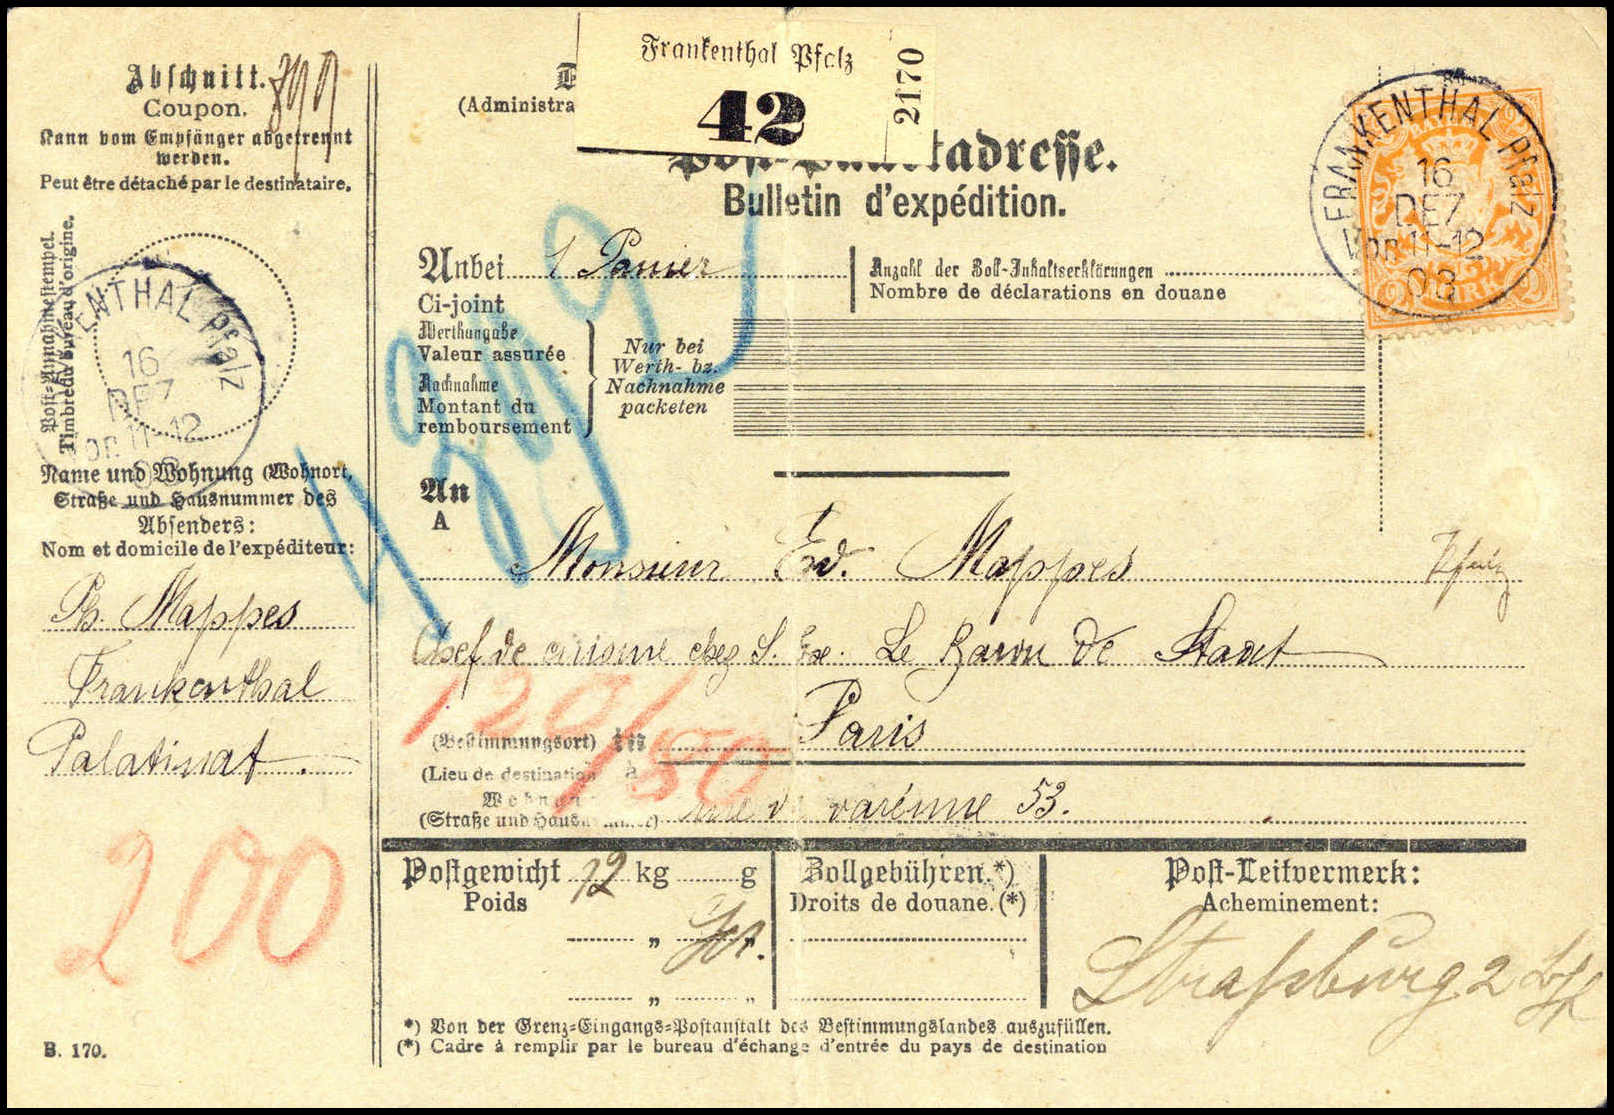 Abschnitt.
Coupon.
Kann vom Empfänger abgetrennt
werden.
Peut être détaché par le destinataire.
Post-Annahmestempel.
Timbre du bureau d'origine.
FRANKENTHAL Pfalz
16
DEZ
Vor. 11-12
03
Name und Wohnung (Wohnort,
Straße und Hausnummer des
Absenders:
Nom et domicile de l'expéditeur:
Ph. Mappes
Frankenthal
Palatinat
200
B. 170.
(Administra
Frankenthal Pfalz
42
2170
Post-Packetadresse.
Bulletin d'expédition.
FRANKENTHAL Pfalz
16
DEZ
Vor. 11-12
03
2 MARK 2
Anbei 1 Panier
Ci-joint
Anzahl der Zoll-Inhaltserklärungen
Nombre de déclarations en douane
Werthangabe
Valeur assurée
Nachnahme
Montant du
remboursement
Nur bei
Werth- bz.
Nachnahme
packeten
An
A
Monsieur Ed. Mappes
Chef de cuisine chez S. Exe. Le Baron de
120/80
(Bestimmungsort) in Paris
(Lieu de destination à
Wohnun
(Straße und Hausnummer) rue de varénne 53.
Postgewicht 12 kg g
Poids
" "
" "
Zollgebühren.*)
Droits de douane.(*)
Post-Leitvermerk:
Acheminement:
Straßburg 2
*) Von der Grenz-Eingangs-Postanstalt des Bestimmungslandes auszufüllen.
(*) Cadre à remplir par le bureau d'échange d'entrée du pays de destination